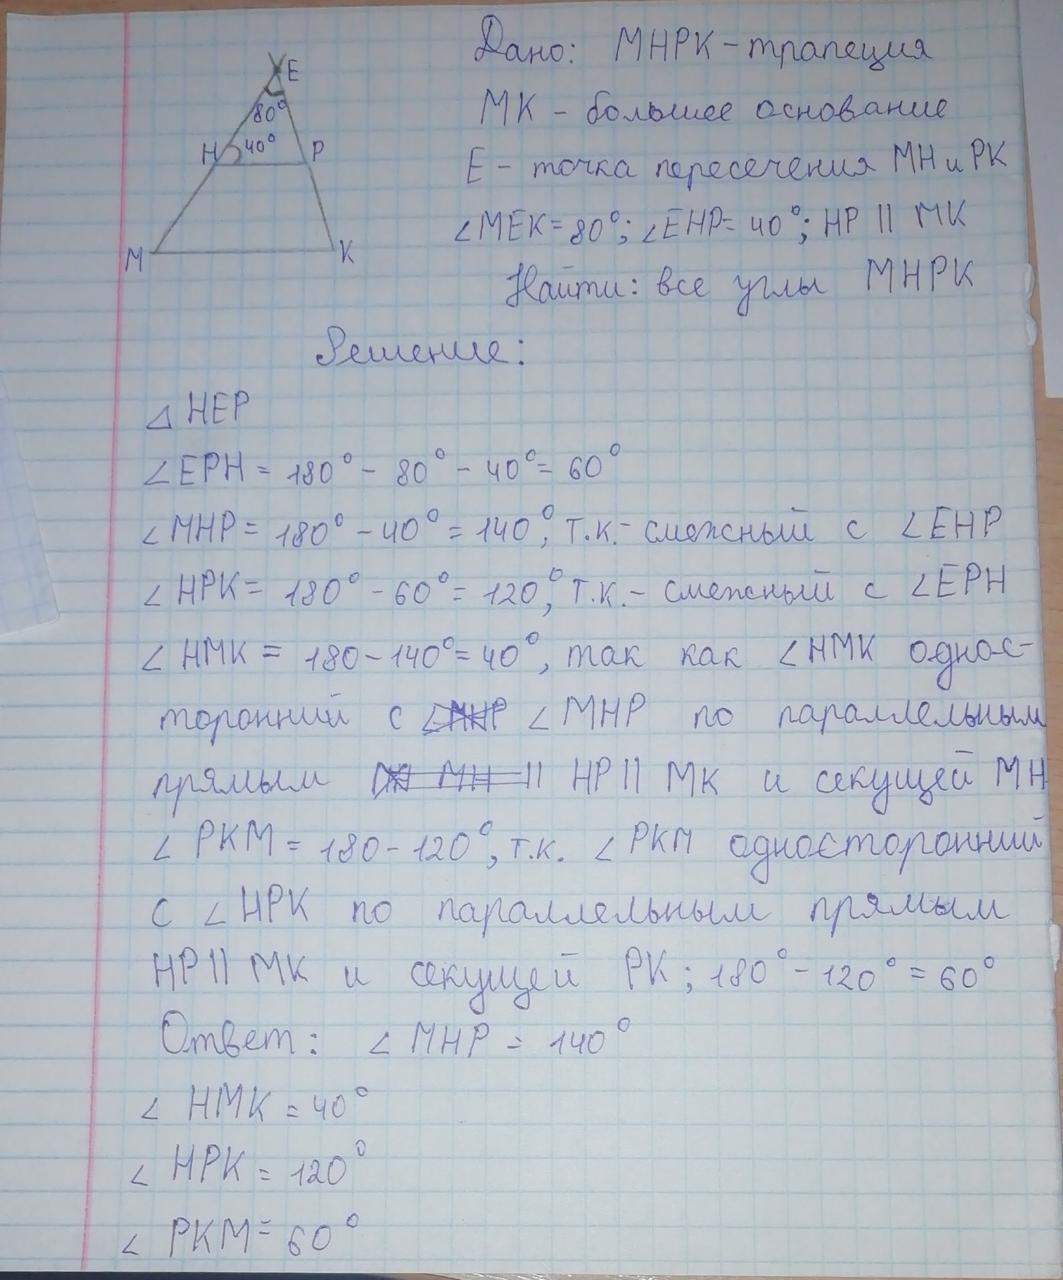 E
80°
H 40° P
M K
Дано: МНРК - трапеция
МК - большее основание
Е - точка пересечения МН и РК
∠МЕК = 80°; ∠ЕНР = 40°; НР || МК
Найти: все углы МНРК
Решение:
△ НЕР
∠ЕРН = 180° - 80° - 40° = 60°
∠МНР = 180° - 40° = 140°, т.к. - смежный с ∠ЕНР
∠НРК = 180° - 60° = 120°, т.к. - смежный с ∠ЕРН
∠НМК = 180 - 140° = 40°, так как ∠НМК однос-
торонний с ∠МНР по параллельным
прямым || НР || МК и секущей МН
∠РКМ = 180 - 120°, т.к. ∠РКМ односторонний
с ∠НРК по параллельным прямым
НР || МК и секущей РК; 180° - 120° = 60°
Ответ: ∠МНР = 140°
∠НМК = 40°
∠НРК = 120°
∠РКМ = 60°